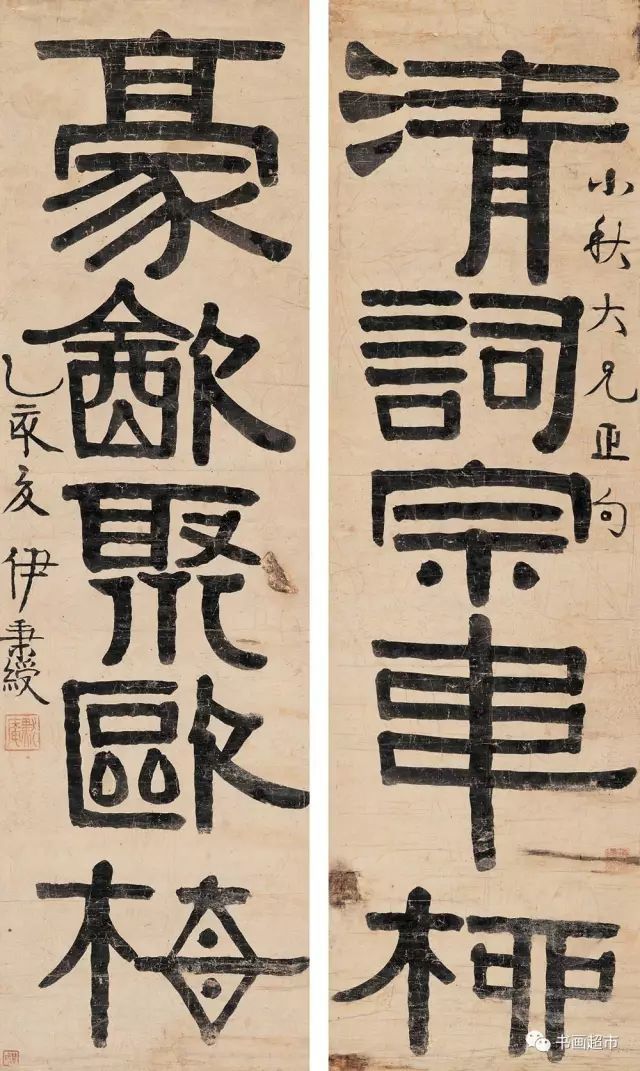 清詞宗柳
小秋大兄正句
豪㱃聚歐梅
乙亥夏 伊秉綬
书画超市